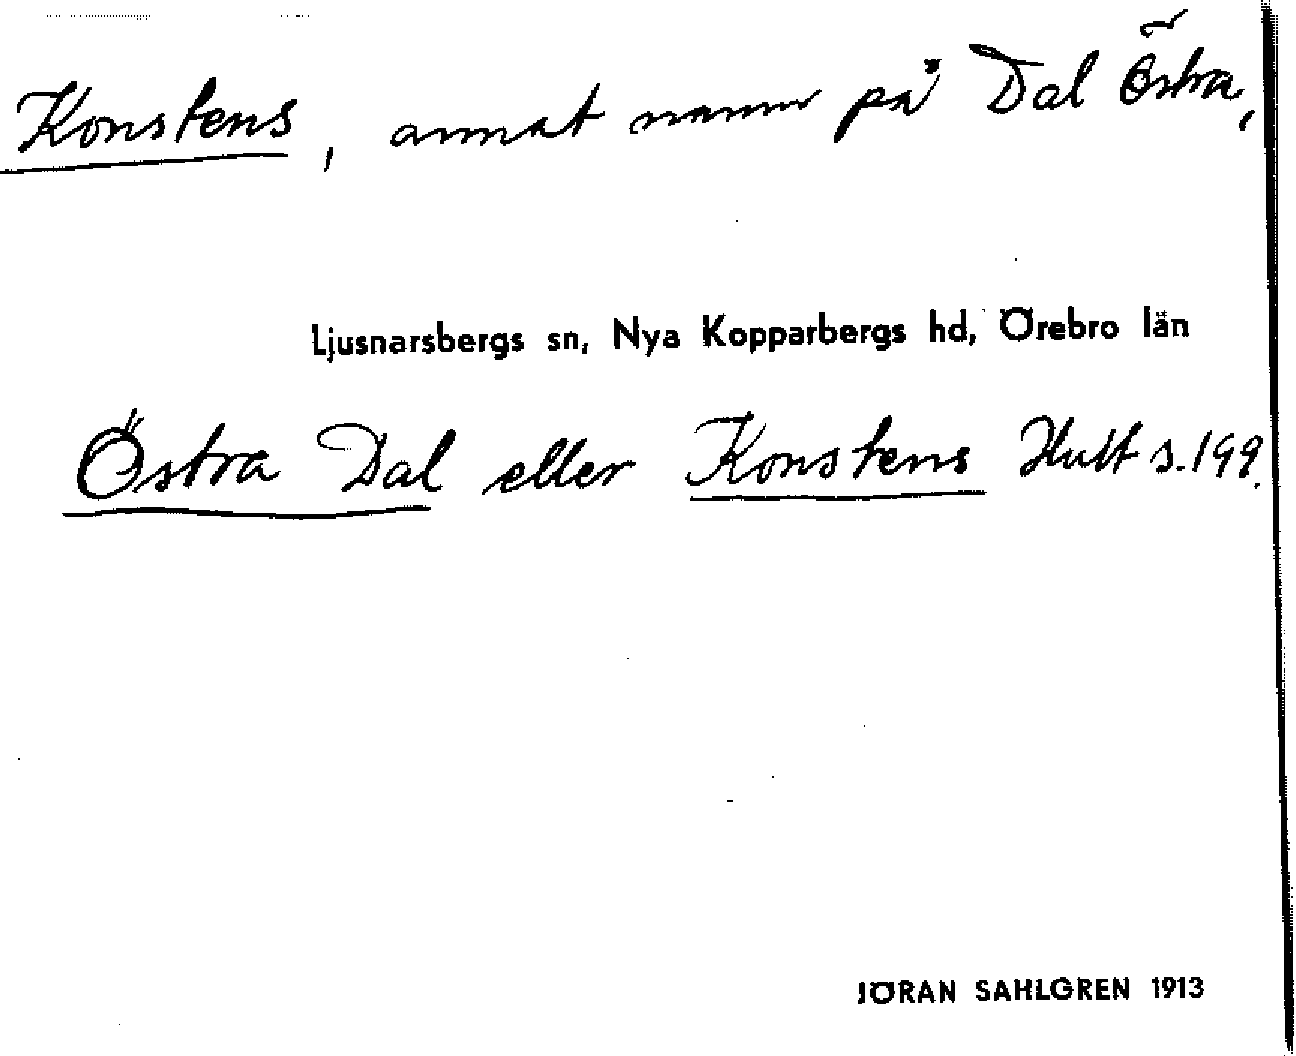 Konstens, annat namn på Dal Östra,
Ljusnarsbergs sn, Nya Kopparbergs hd, Örebro län
Östra Dal eller Konstens Hult s. 199.
JÖRAN SAHLGREN 1913